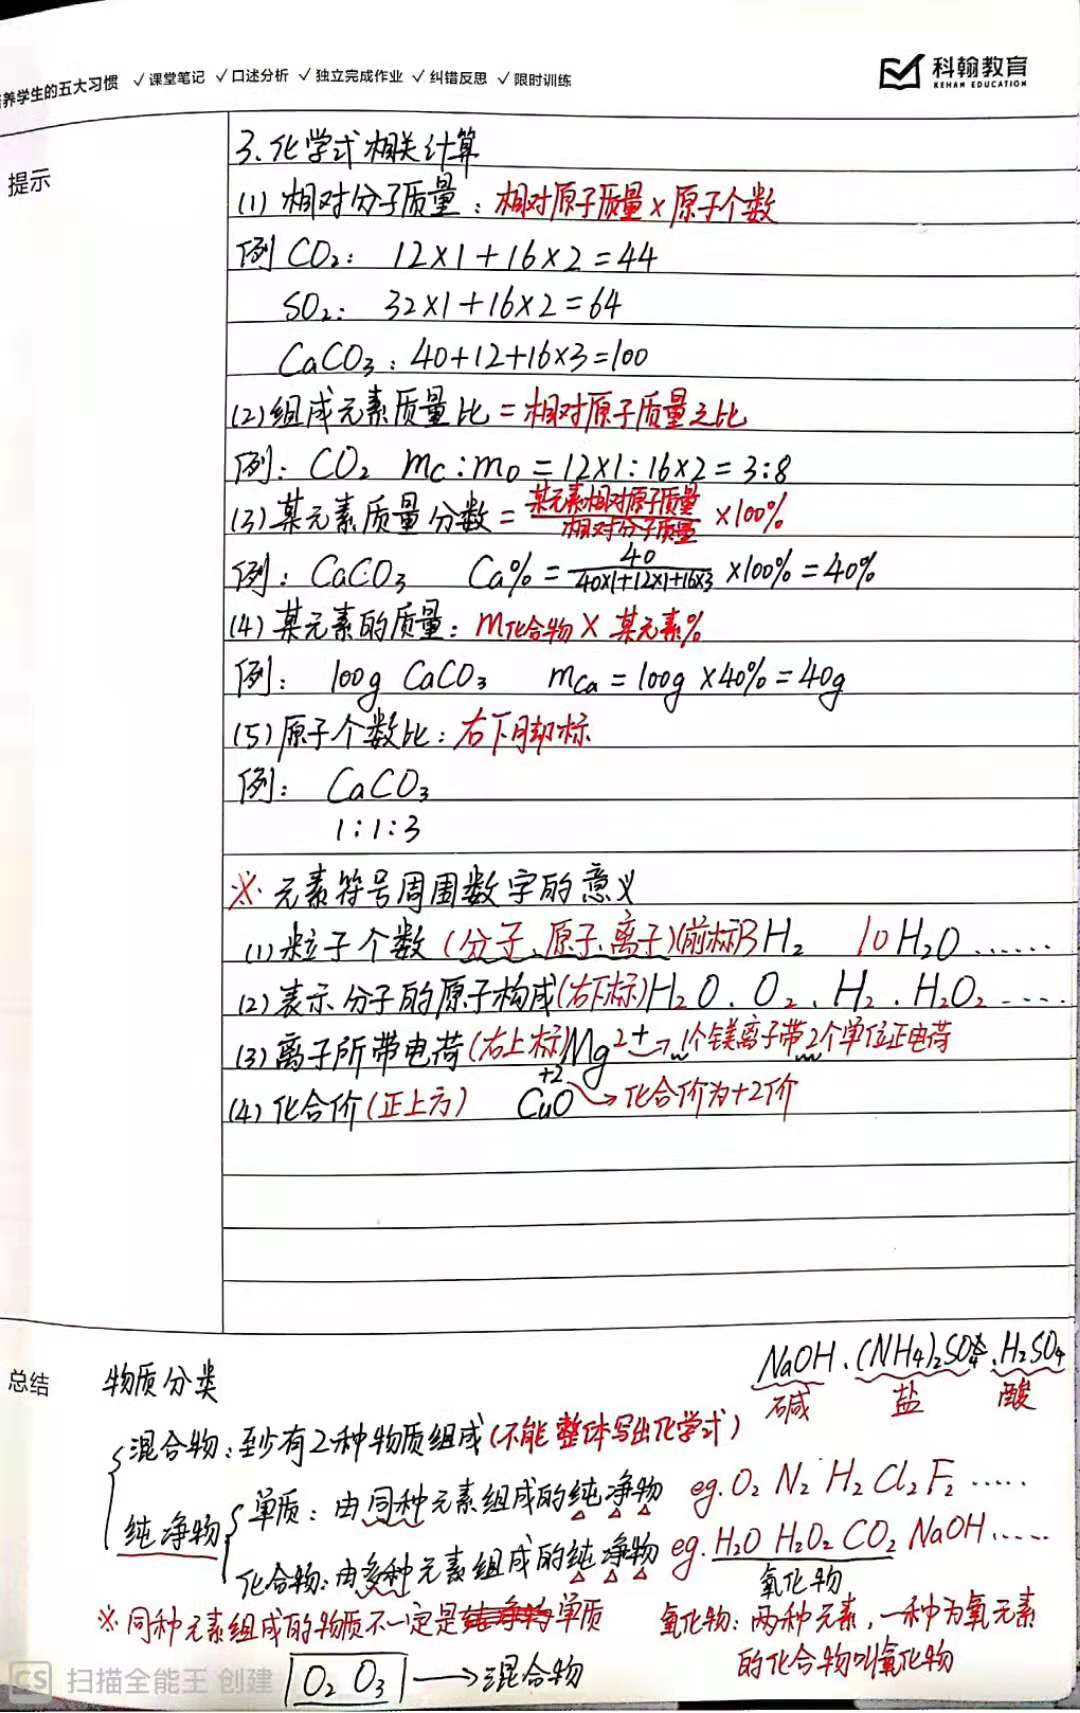 养学生的五大习惯 ✓课堂笔记 ✓口述分析 ✓独立完成作业 ✓纠错反思 ✓限时训练
科翰教育
KEHAN EDUCATION
提示
3、化学式相关计算
(1) 相对分子质量：相对原子质量×原子个数
例 CO₂： 12×1+16×2=44
SO₂： 32×1+16×2=64
CaCO₃：40+12+16×3=100
(2) 组成元素质量比=相对原子质量之比
例：CO₂ mC:mO=12×1:16×2=3:8
(3) 某元素质量分数=某元素相对原子质量/相对分子质量 ×100%
例：CaCO₃ Ca%=40/40×1+12×1+16×3 ×100%=40%
(4) 某元素的质量：m化合物×某元素%
例： 100g CaCO₃ mCa=100g×40%=40g
(5) 原子个数比：右下脚标
例： CaCO₃
1:1:3
※ 元素符号周围数字的意义
(1) 粒子个数(分子、原子、离子)(前标)3H₂ 10H₂O……
(2) 表示分子的原子构成(右下标)H₂O、O₂、H₂、H₂O₂……
(3) 离子所带电荷(右上标)Mg²⁺→1个镁离子带2个单位正电荷
+2
(4) 化合价(正上方) CuO→化合价为+2价
总结
物质分类
NaOH、(NH₄)₂SO₄、H₂SO₄
碱 盐 酸
混合物：至少有2种物质组成(不能整体写出化学式)
纯净物
单质：由同种元素组成的纯净物 eg.O₂ N₂ H₂ Cl₂ F₂……
化合物：由多种元素组成的纯净物 eg.H₂O H₂O₂ CO₂ NaOH……
氧化物
※ 同种元素组成的物质不一定是单质
氧化物：两种元素，一种为氧元素
的化合物叫氧化物
O₂ O₃→混合物
CS 扫描全能王 创建